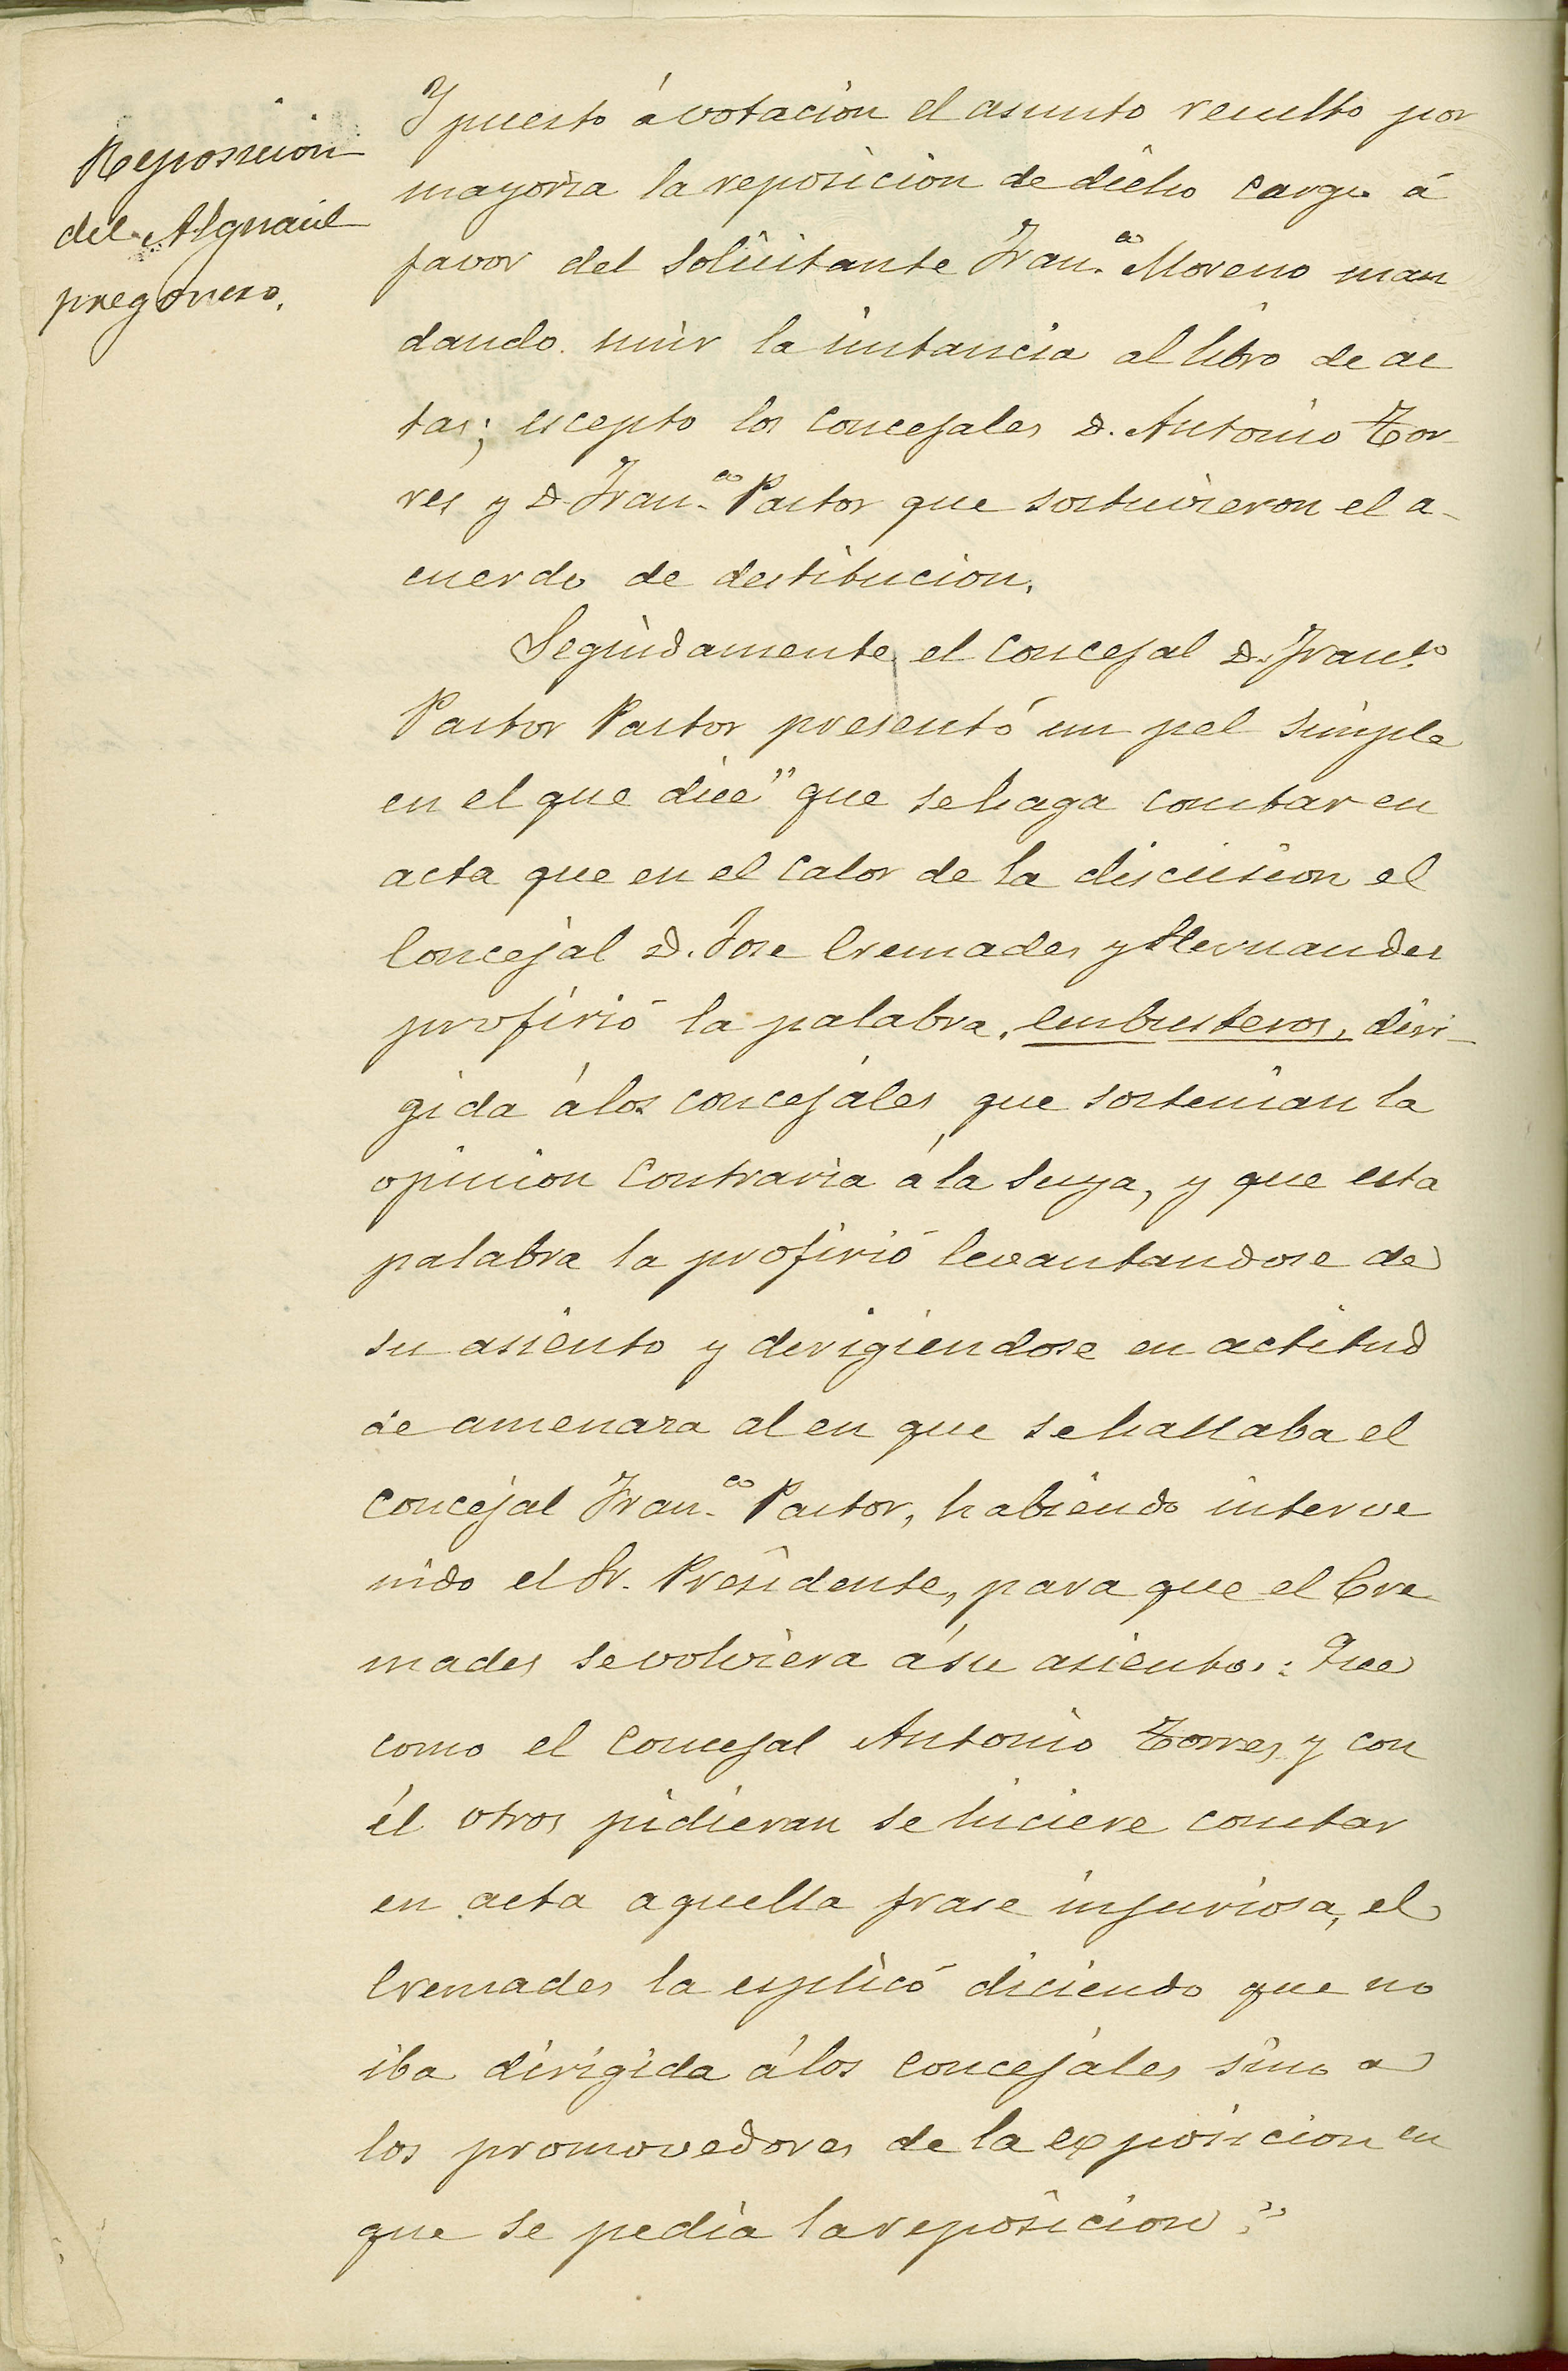 Reposicion
del Alguacil
pregonero.
Y puesto á votacion el asunto resulto por
mayoria la reposicion de dicho cargo á
favor del solicitante Fran.co Moreno man
dando unir la instancia al libro de ac
tas; escepto los concejales D. Antonio Tor-
res y D. Fran.co Pastor que sostuvieron el a-
cuerdo de destitucion.
Seguidamente el concejal D. Fran.co
Pastor Pastor presentó un pel simple
en el que dice" que se haga constar en
acta que en el calor de la discusion el
Concejal D. Jose Cremades y Hernandez
profirió la palabra, embusteros, diri-
gida á los concejales que sostenian la
opinion contraria á la suya, y que esta
palabra la profirió levantandose de
su asiento y derigiendose en actitud
de amenaza al en que se hallaba el
concejal Fran.co Pastor, habiendo interve
nido el Sr. Presidente, para que el Cre
mades se volviera á su asiento.: Que
como el concejal Antonio Torres y con
él otros pidieran se hiciere constar
en acta aquella frase injuriosa, el
Cremades la esplicó diciendo que no
iba dirigida á los concejales sino a
los promovedores de la exposicion en
que se pedia la reposicion."